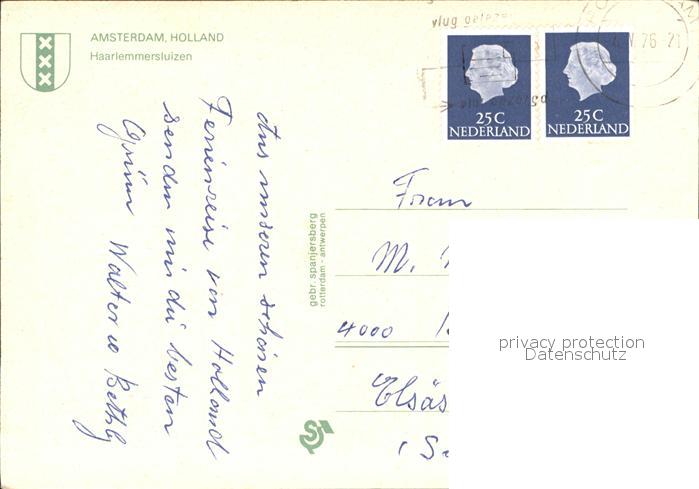 AMSTERDAM, HOLLAND
Haarlemmersluizen
25 C
NEDERLAND
25 C
NEDERLAND
76-21
Aus unseren schönen
Ferienreise von Holland
senden wir die besten
Grüsse Walter u Bethly
gebr. spanjersberg
rotterdam - antwerpen
Frau
M.
4000
Elsäs
(S
privacy protection
Datenschutz